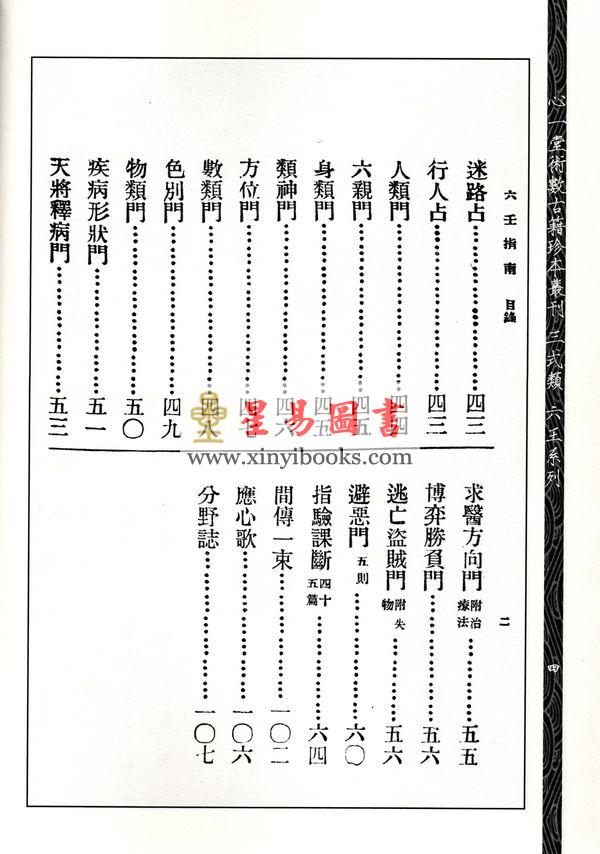 心一堂術數古籍珍本叢刊 三式類 六壬系列
四
六壬指南 目錄
二
迷路占………四三
行人占………四三
人類門………四四
六親門………四五
身類門………四五
類神門………四六
方位門………四七
數類門………四八
色別門………四九
物類門………五〇
疾病形狀門………五一
天將釋病門………五三
求醫方向門 附治療法………五五
博弈勝負門………五六
逃亡盜賊門 附失物………五六
避惡門 五則………六〇
指驗課斷 四十五篇………六四
間傳一束………一〇二
應心歌………一〇六
分野誌………一〇七
星易圖書
www.xinyibooks.com